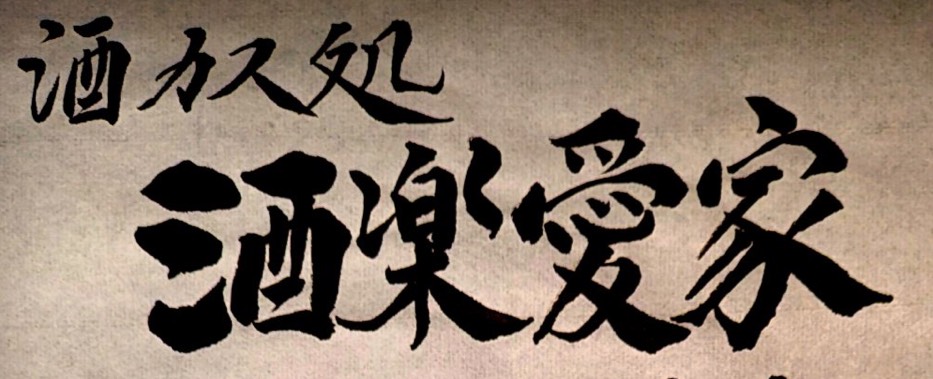 酒カス処
酒楽愛家